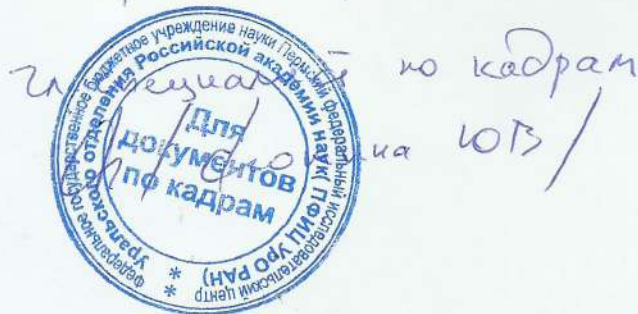 гл специалист по кадрам
ЮВ/
Федеральное государственное бюджетное учреждение науки Пермский федеральный исследовательский центр
Уральского отделения Российской академии наук (ПФИЦ УрО РАН)
Для
документов
по кадрам